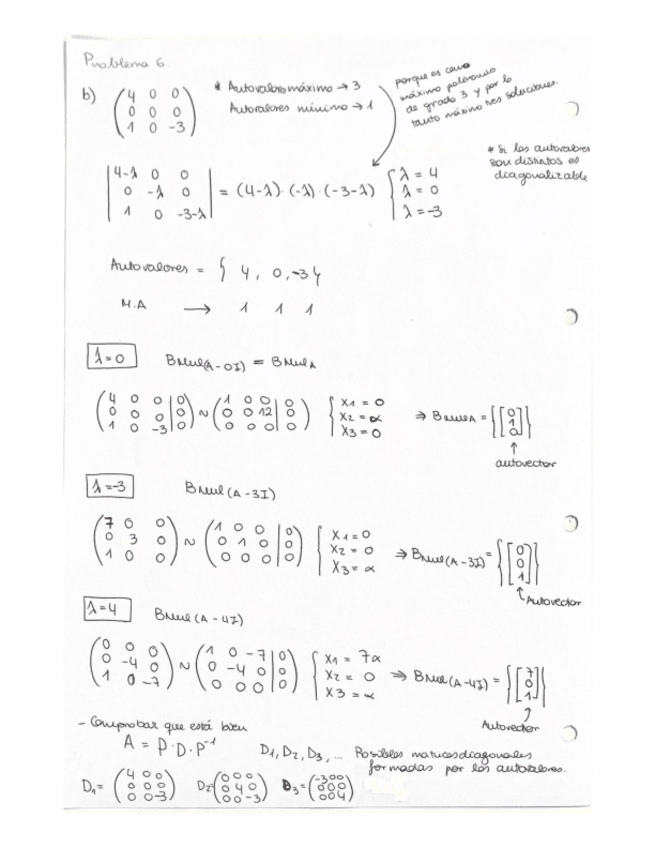 Problema 6.
b) (4 0 0 / 0 0 0 / 1 0 -3) * Autovalores máximo → 3
Autovalores mínimo → 1
porque es como
máximo polinomio
de grado 3 y por lo
tanto máximo tres soluciones.
* Si los autovalores
son distintos es
diagonalizable
|4-λ 0 0 / 0 -λ 0 / 1 0 -3-λ| = (4-λ)·(-λ)·(-3-λ) { λ = 4 / λ = 0 / λ = -3
Autovalores = { 4, 0, -3 }
M.A → 1 1 1
λ=0 BNul(A-0I) = BNul A
(4 0 0 | 0 / 0 0 0 | 0 / 1 0 -3 | 0) ~ (1 0 0 | 0 / 0 0 12 | 0 / 0 0 0 | 0) { x1 = 0 / x2 = α / x3 = 0 ⇒ BNul A = {[0 1 0]}
↑
autovector
λ=-3 BNul(A-3I)
(7 0 0 / 0 3 0 / 1 0 0) ~ (1 0 0 | 0 / 0 1 0 | 0 / 0 0 0 | 0) { x1 = 0 / x2 = 0 / x3 = α ⇒ BNul(A-3I) = {[0 0 1]}
↑ Autovector
λ=4 BNul(A-4I)
(0 0 0 / 0 -4 0 / 1 0 -7) ~ (1 0 -7 | 0 / 0 -4 0 | 0 / 0 0 0 | 0) { x1 = 7α / x2 = 0 / x3 = α ⇒ BNul(A-4I) = {[7 0 1]}
Autovector
- Comprobar que está bien
A = P·D·P⁻¹ D1, D2, D3, ... Posibles matrices diagonales
formadas por los autovalores.
D1 = (4 0 0 / 0 0 0 / 0 0 -3) D2 = (0 0 0 / 0 4 0 / 0 0 -3) D3 = (-3 0 0 / 0 0 0 / 0 0 4)